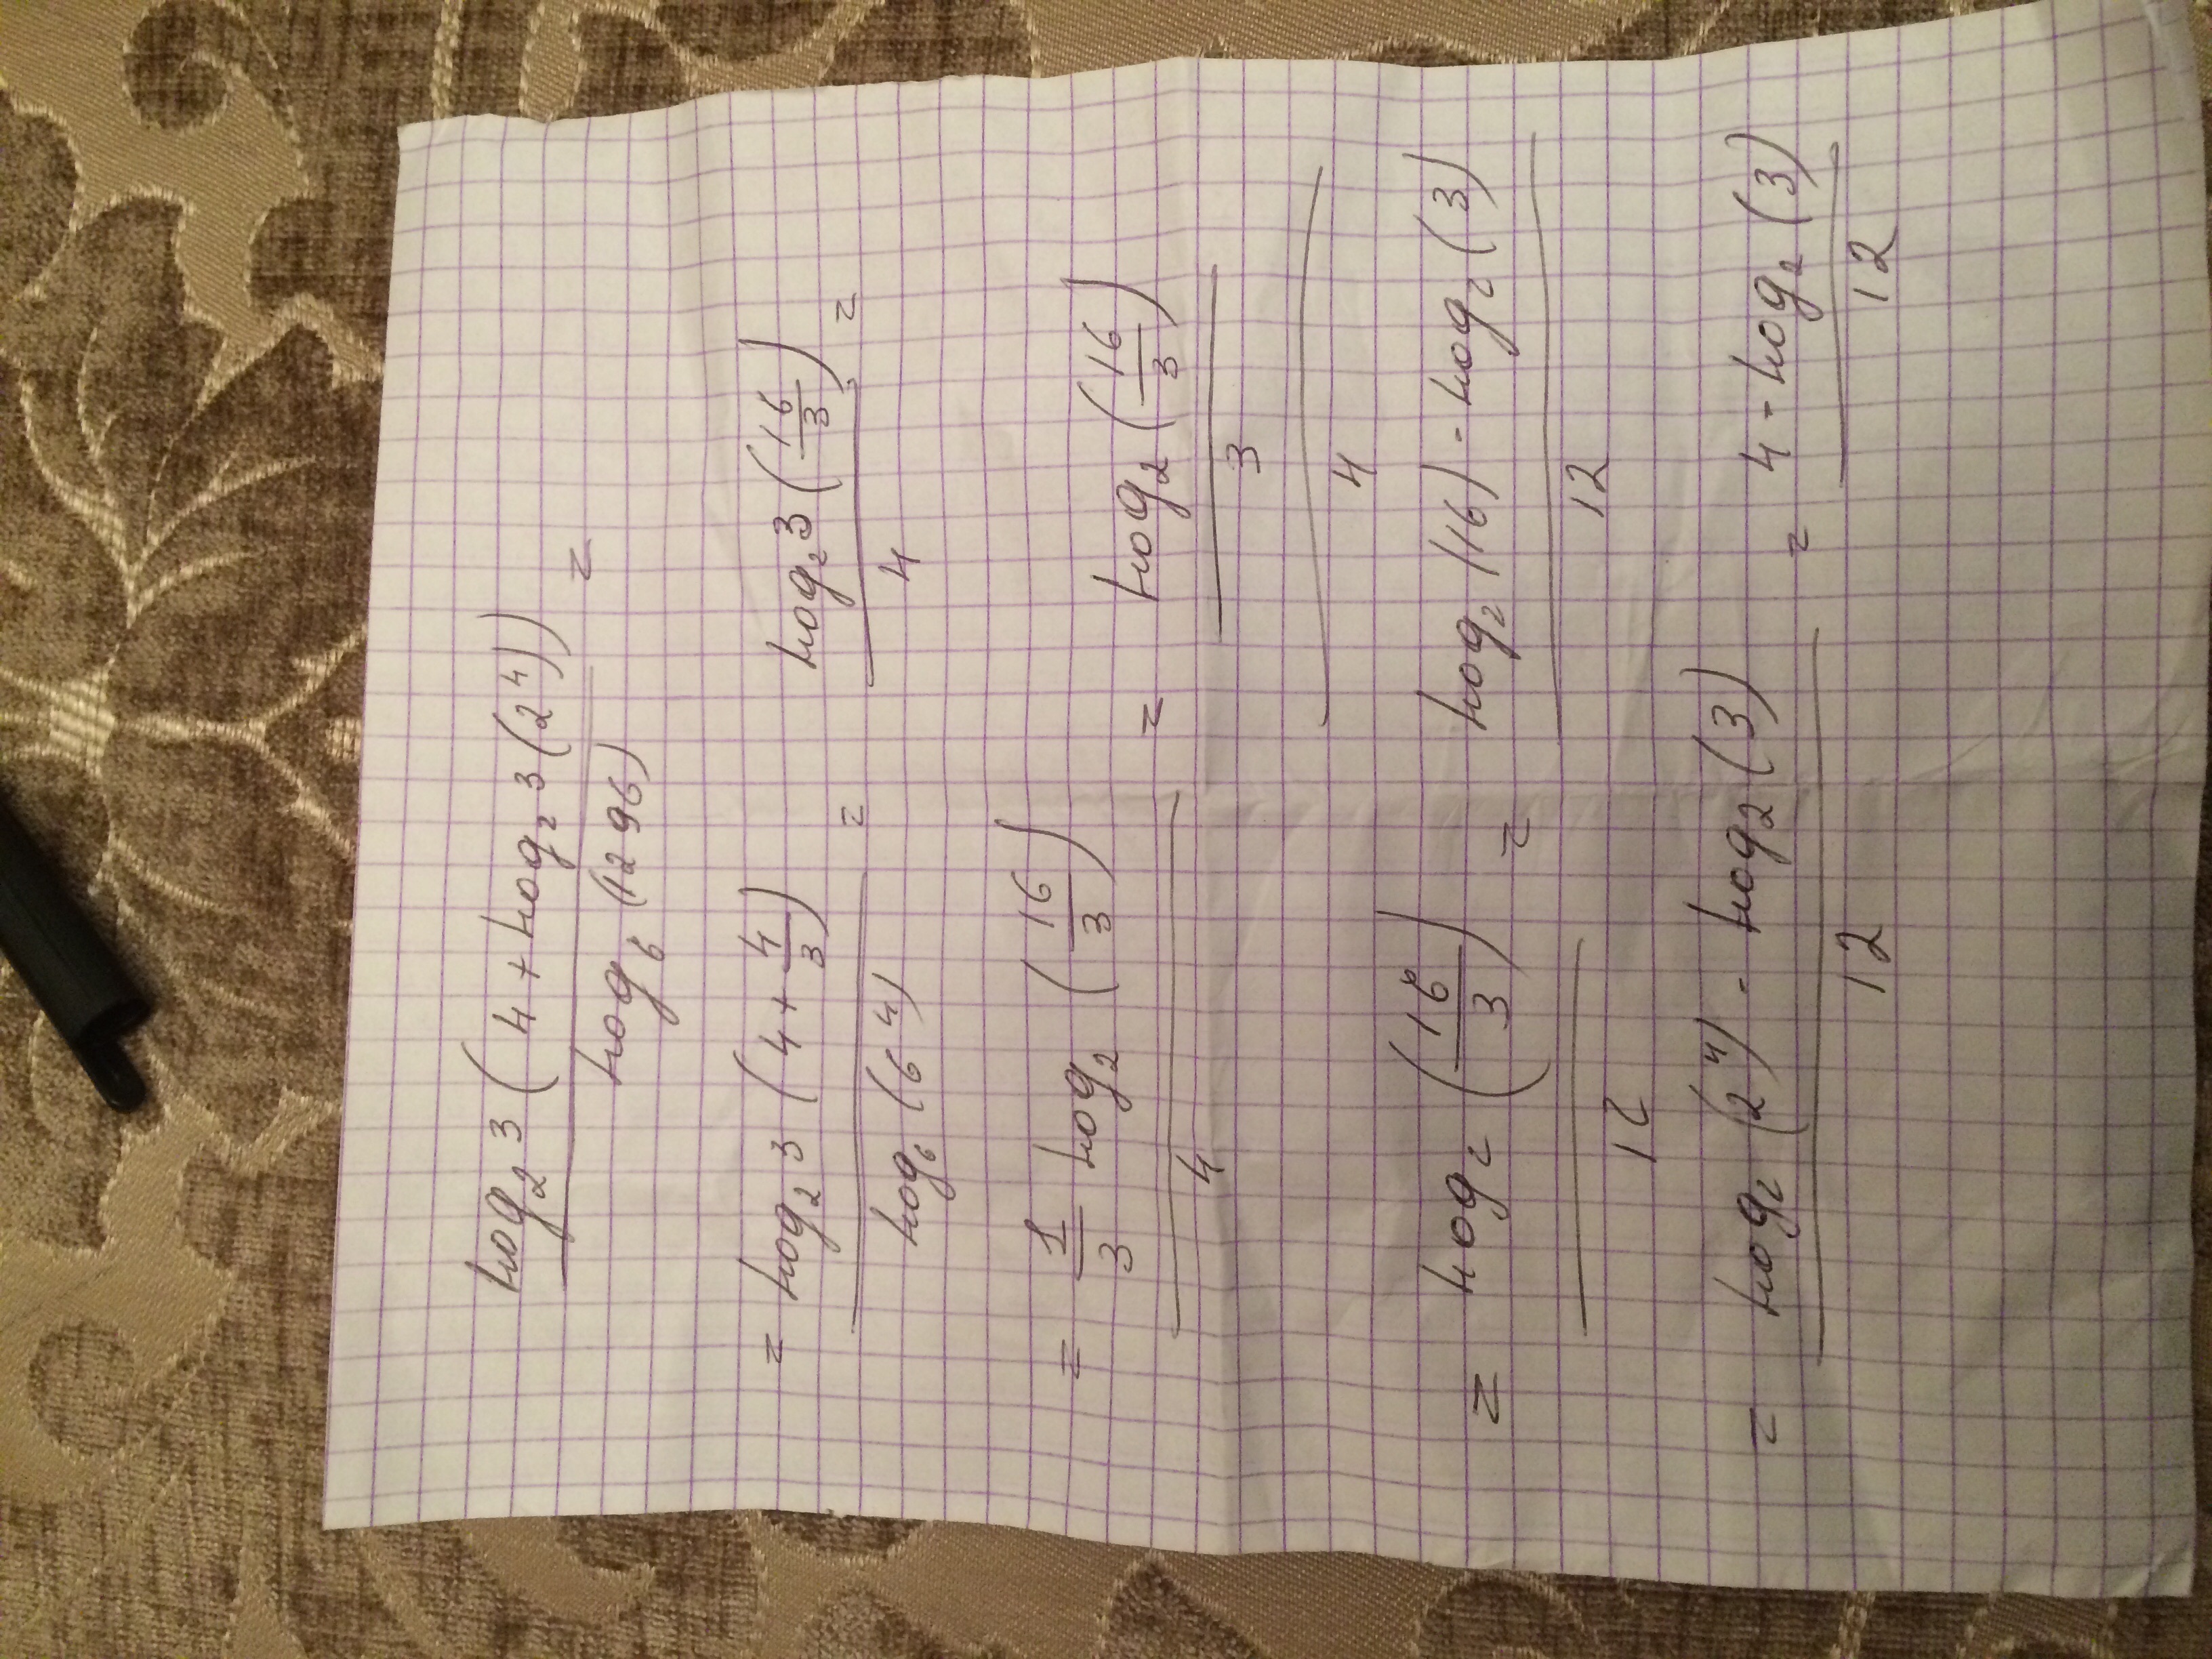 log₂3(4+log₂3(2⁴)) =
log₆(1296)
= log₂3(4+4/3) = log₂3(16/3) =
log₆(6⁴) 4
= 1/3 log₂(16/3) = log₂(16/3)
4 3
4
= log₂(16/3) = log₂(16)-log₂(3)
12 12
= log₂(2⁴)-log₂(3) = 4-log₂(3)
12 12